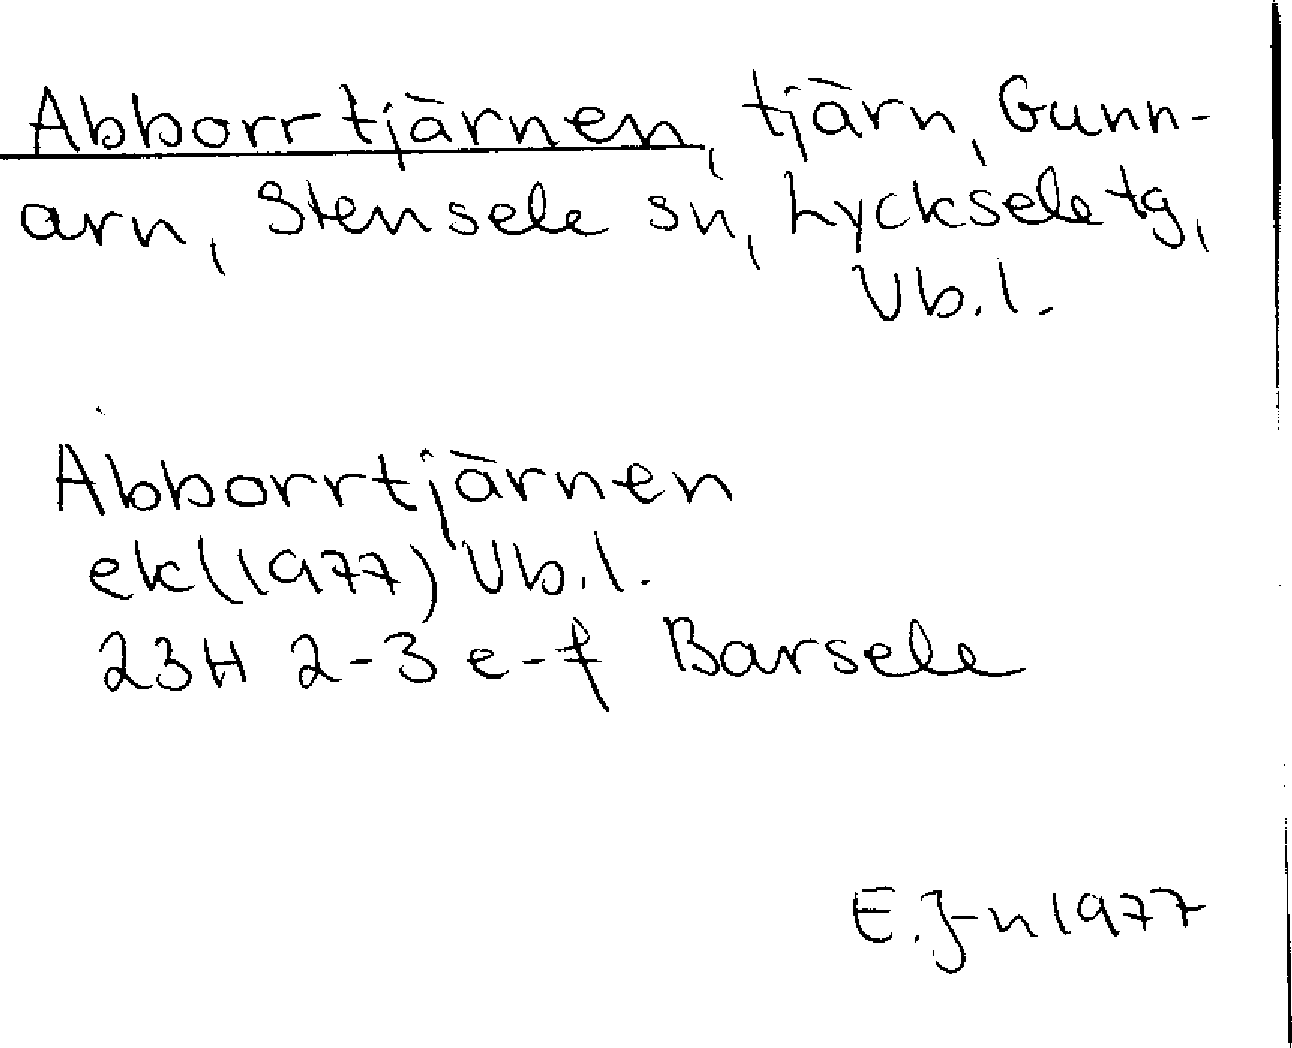 Abborrtjärnen, tjärn, Gunn-
arn, Stensele sn, Lycksele tg,
Vb.l.
Abborrtjärnen
ek(1977) Vb.l.
23H 2-3 e-f Barsele
E.J-n 1977